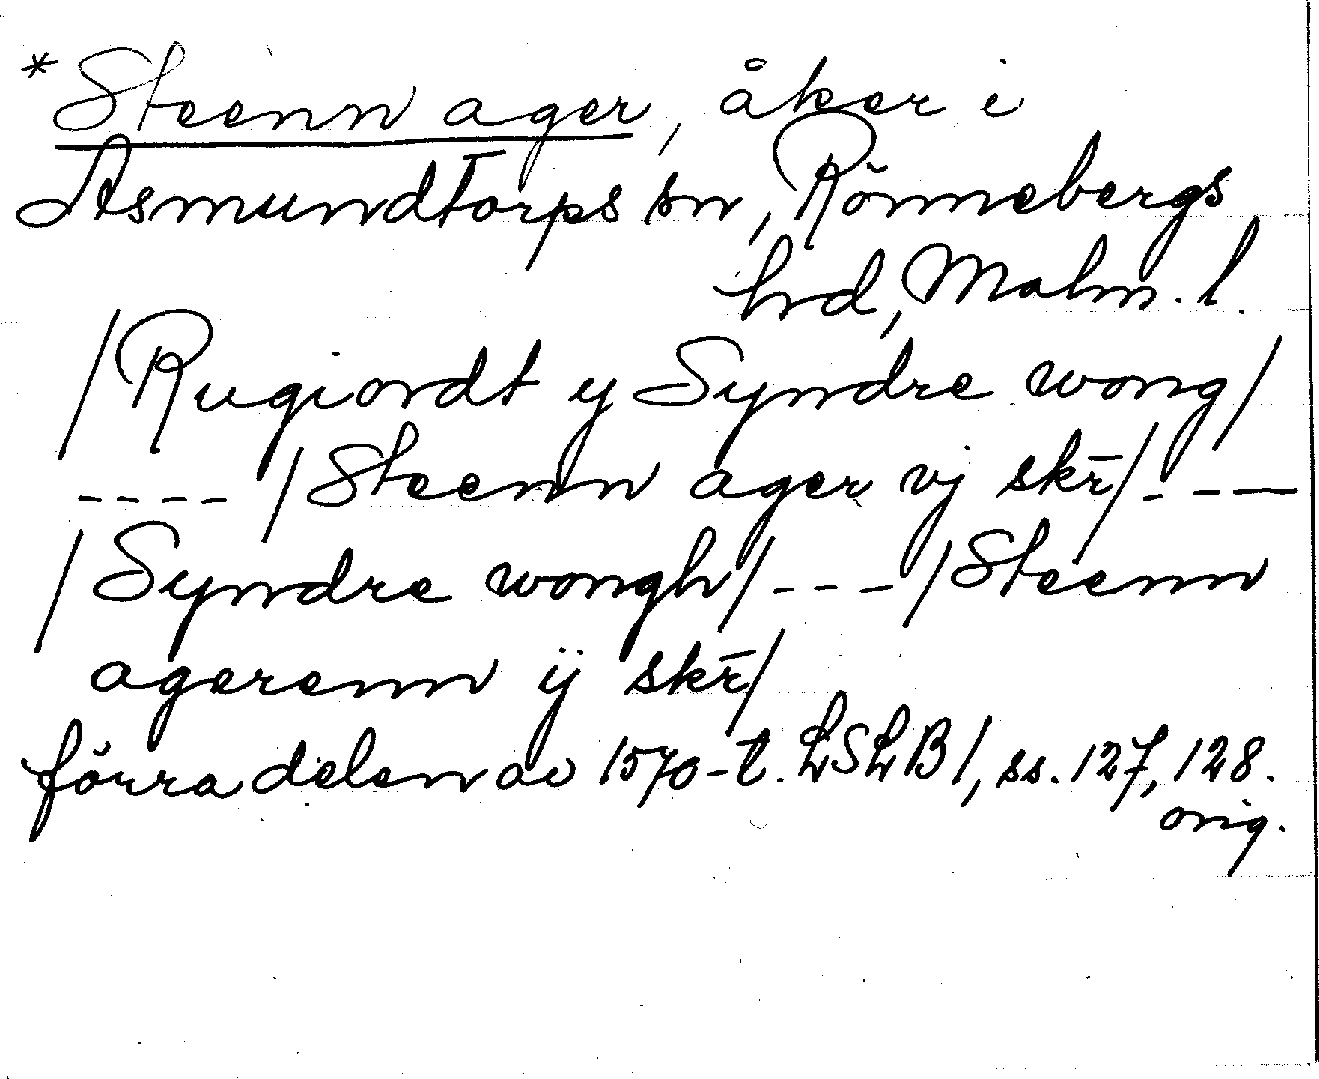 *Steenn ager, åker i
Asmundtorps sn, Rönnebergs
hrd, Malm. l.
/Rugiordt y Syndre wong/
---- /Steenn ager vj skr̄/ ---
/Syndre wongh/ --- /Steenn
agerenn ÿ skr̄/
förra delen av 1570-t. LSLB 1, ss. 127, 128.
orig.